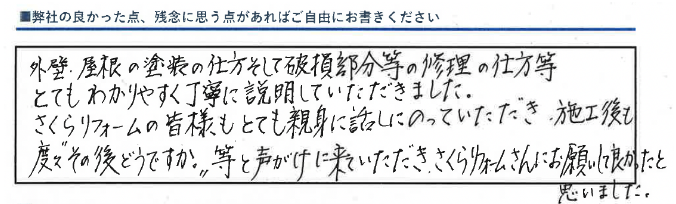 ■弊社の良かった点、残念に思う点があればご自由にお書きください
外壁、屋根の塗装の仕方そして破損部分等の修理の仕方等
とてもわかりやすく丁寧に説明していただきました。
さくらリフォームの皆様もとても親身に話しにのっていただき、施工後も
度々“その後どうですか。”等と声がけに来ていただき、さくらリフォームさんにお願いして良かったと
思いました。